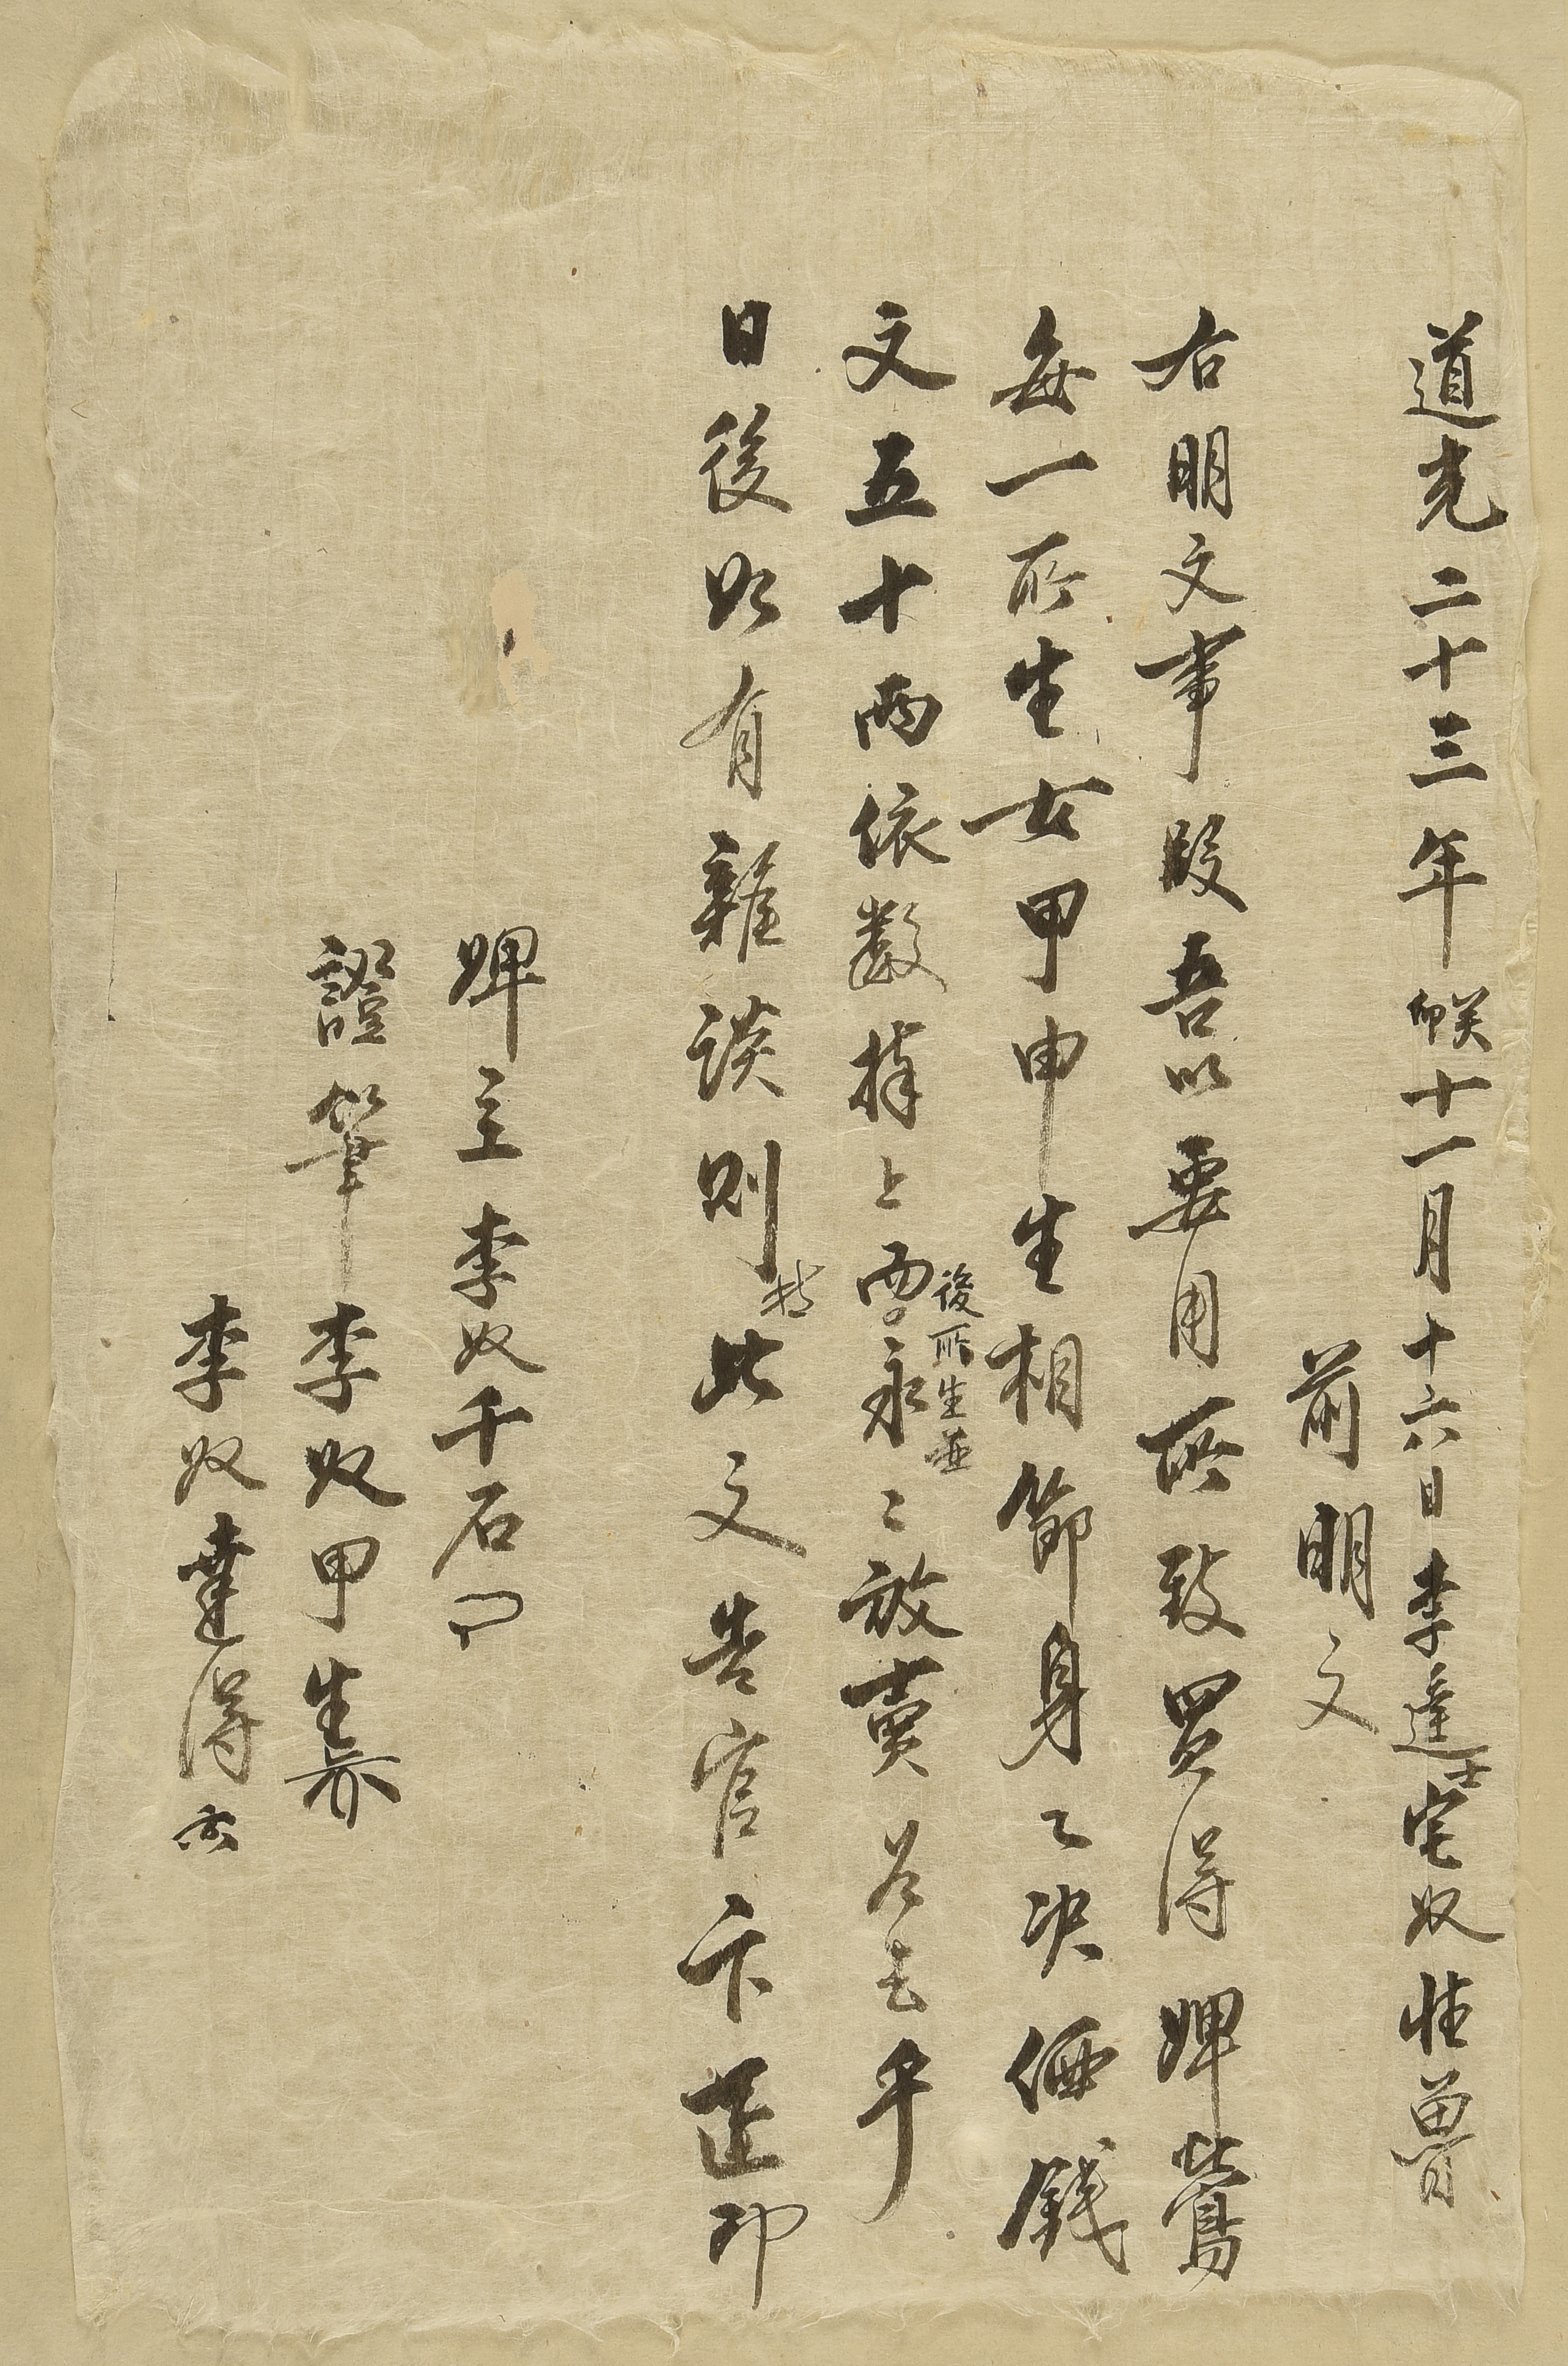 道光二十三年癸卯十一月十六日李進士宅奴性曽
前明文
右明文事段吾以要用所致買得婢鶯
每一所生女甲申生相節身乙決価錢
文五十兩依數捧上而後所生並永々放賣爲去乎
日後如有雜談則持此文告官卞正印
婢主李奴千石
證筆李奴甲生
李奴達得